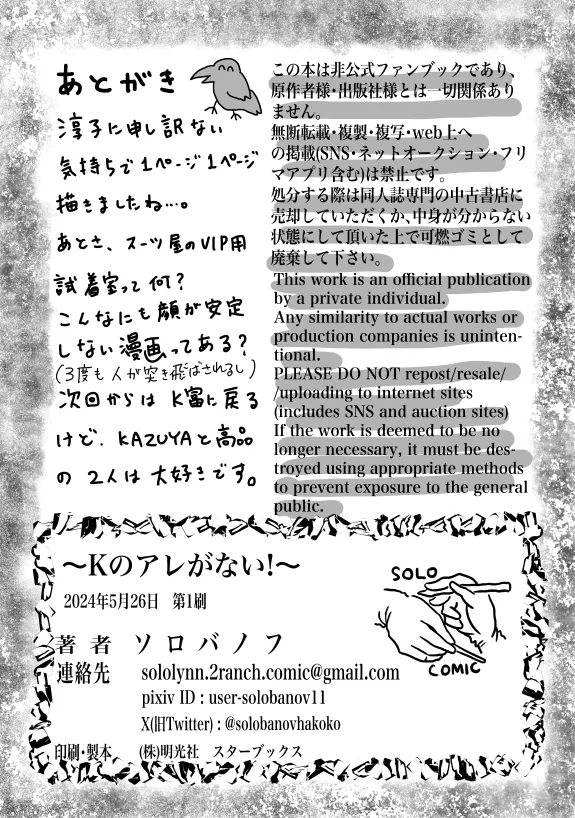 あとがき
淳子に申し訳ない
気持ちで1ページ1ページ
描きましたね…。
あとさ、スーツ屋のVIP用
試着室って何?
こんなにも顔が安定
しない漫画ってある?
(3度も人が突き飛ばされるし)
次回からは K富に戻る
けど、KAZUYAと高品
の 2人は大好きです。
この本は非公式ファンブックであり、
原作者様・出版社様とは一切関係あり
ません。
無断転載・複製・複写・web上へ
の掲載(SNS・ネットオークション・フリ
マアプリ含む)は禁止です。
処分する際は同人誌専門の中古書店に
売却していただくか、中身が分からない
状態にして頂いた上で可燃ゴミとして
廃棄して下さい。
This work is an official publication
by a private individual.
Any similarity to actual works or
production companies is uninten-
tional.
PLEASE DO NOT repost/resale/
/uploading to internet sites
(includes SNS and auction sites)
If the work is deemed to be no
longer necessary, it must be des-
troyed using appropriate methods
to prevent exposure to the general
public.
〜Kのアレがない!〜
2024年5月26日 第1刷
著者 ソロバノフ
連絡先 sololynn.2ranch.comic@gmail.com
pixiv ID : user-solobanov11
X(旧Twitter) : @solobanovhakoko
印刷・製本 (株)明光社 スターブックス
SOLO
COMIC